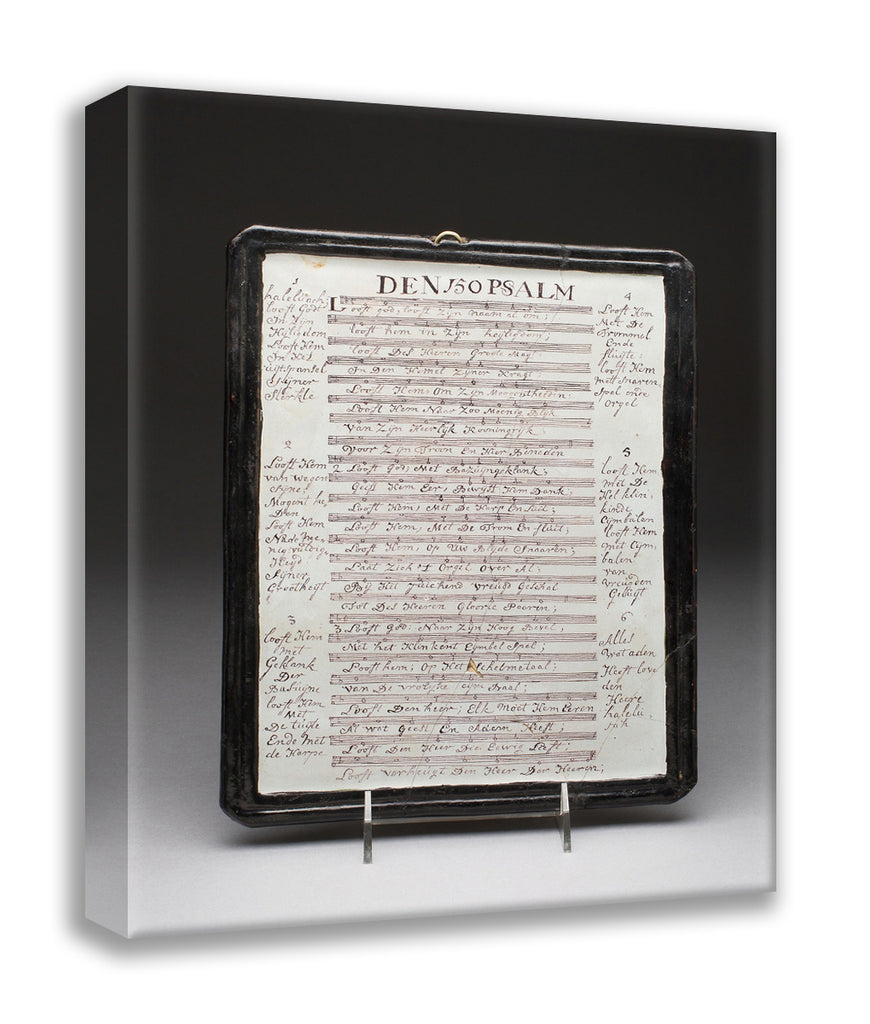 DEN 150 PSALM
1
halelujach
looft Godt
In Zijn
Heiligdom
Looft Hem
In Het
uijtspansel
Sijner
Sterkte
2
Looft Hem
van wegen
Sijne
Mogent he
Den
Looft Hem
Na de me
nig vuldig
Heijd
Sijner
Grootheijt
3
looft Hem
met
Geklank
Der
Basuijne
looft Hem
Met
De luijte
Ende Met
de Harpe
Looft god, looft Zijn naam al om;
looft hem in Zijn heijligdom;
looft Des Heeren Groote Magt
In Den Hemel Zijner Kragt
Looft Hem, Om Zijn Moogentheeden:
Looft Hem Naar Zoo Meenig Blijk
van Zijn Heerlijk Kooningrijk
Voor Zijn Troon En Hier Beneden
2 Looft God, Met Bazuijngeklank;
Geeft Hem Eer, Bewijst Hem Dank;
Looft Hem, Met De Harp En luit;
Looft Hem, Met De Trom En fluit;
Looft Hem, Op Uw Blijde Snaaren;
Laat Zich 't Orgel Over Al;
Bij Het Juichend vreugd Geschal
Tot Des Heeren Gloorie Paeren;
3 Looft God: Naar Zijn Hoog Bevel;
Met het Klinkent Cijmbel Spel;
Looft hem; Op Het Schelmetaal;
van De vrolijke Cijmbaal;
Looft Den heer; Elk Moet Hem Eeren
Al wat Geest En Adem Heeft;
Looft Den Heer Die Eewig Leeft;
Looft verheugt Den Heer Der Heeren;
4
Looft Hem
Met De
Trommel
Ende
fluijte:
looft Hem
met Snaren
Spel ende
Orgel
5
looft Hem
met De
Hel klin,
kinde
Cijmbalen
looft Hem
met Cijm,
balen
van
vreugden
Geluijt
6
Alles
Wat aden
Heeft love
den
Heere
halelu-
jah